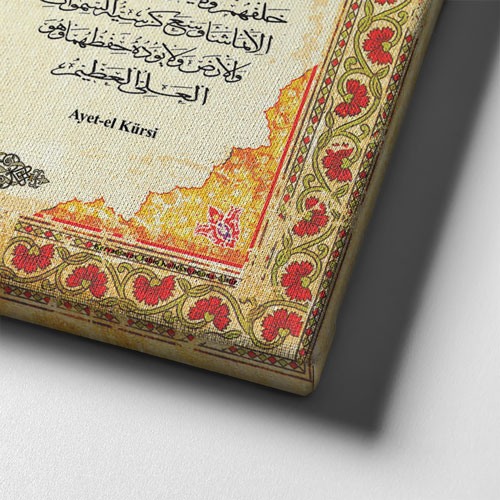 خلفهم
الا بما شاء وسع كرسيه السموات
والارض ولا يؤده حفظهما وهو
العلي العظيم
Ayet-el Kürsi